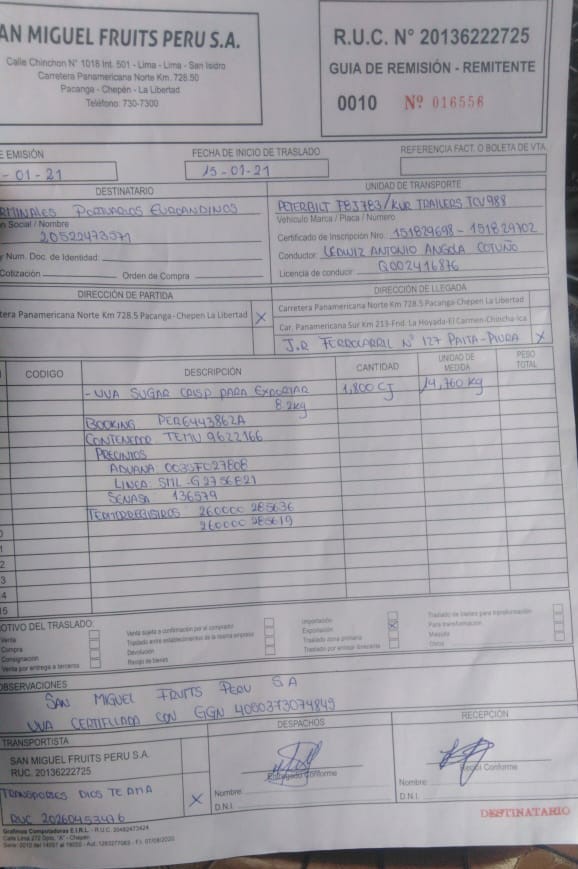 AN MIGUEL FRUITS PERU S.A.
Calle Chinchon N° 1018 Int. 501 - Lima - Lima - San Isidro
Carretera Panamericana Norte Km. 728.50
Pacanga - Chepén - La Libertad
Teléfono: 730-7300
R.U.C. N° 20136222725
GUIA DE REMISIÓN - REMITENTE
0010 Nº 016556
E EMISIÓN
- 01 - 21
FECHA DE INICIO DE TRASLADO
15 - 01 - 21
REFERENCIA FACT. O BOLETA DE VTA.
DESTINATARIO
RMINALES PORTUARIOS EUROANDINOS
n Social / Nombre
20522473571
y Num. Doc. de Identidad:
Cotización Orden de Compra
UNIDAD DE TRANSPORTE
PETERBILT / KUR TRAILERS
Vehículo Marca / Placa / Numero
Certificado de Inscripción Nro. 151829698 - 151829702
Conductor: ANTONIO ANGOLA
Licencia de conducir Q002416876
DIRECCIÓN DE PARTIDA
tera Panamericana Norte Km 728.5 Pacanga-Chepen La Libertad X
DIRECCIÓN DE LLEGADA
Carretera Panamericana Norte Km 728.5 Pacanga-Chepen La Libertad
Car. Panamericana Sur Km 213-Fnd. La Hoyada-El Carmen-Chincha-Ica
J.R FERROCARRIL N° 127 PAITA - PIURA X
CODIGO DESCRIPCIÓN CANTIDAD UNIDAD DE MEDIDA PESO TOTAL
- UVA SUGAR CRISP PARA EXPORTAR 1,800 CJ 14,760 kg
8.2kg
BOOKING PERE443862A
CONTENEDOR TEMU 9622166
PRECINTOS
ADUANA
LINEA
SENASA 136579
TERMORREGISTROS 260000 285636
260000 285619
1
2
3
4
5
OTIVO DEL TRASLADO:
Venta
Compra
Consignación
Venta por entrega a terceros
Venta sujeta a confirmación por el comprador
Traslado entre establecimientos de la misma empresa
Devolución
Recojo de bienes
Importación
Exportación X
Traslado zona primaria
Traslado por emisor itinerante
Traslado de bienes para transformación
Para transformación
Otros
OBSERVACIONES
SAN MIGUEL FRUITS PERU S A
UVA CERTIFICADA CON GGN 4050373074849
TRANSPORTISTA
SAN MIGUEL FRUITS PERU S.A.
RUC. 20136222725
TRANSPORTES DIOS TE AMA X
RUC 20260453476
DESPACHOS
Entregado Conforme
Nombre
D.N.I.
RECEPCIÓN
Recibí Conforme
Nombre
D.N.I.
DESTINATARIO
Grafimos Computadoras E.I.R.L - R.U.C. 20482473424
Calle Lima 272 Dpto. "A" - Chepén